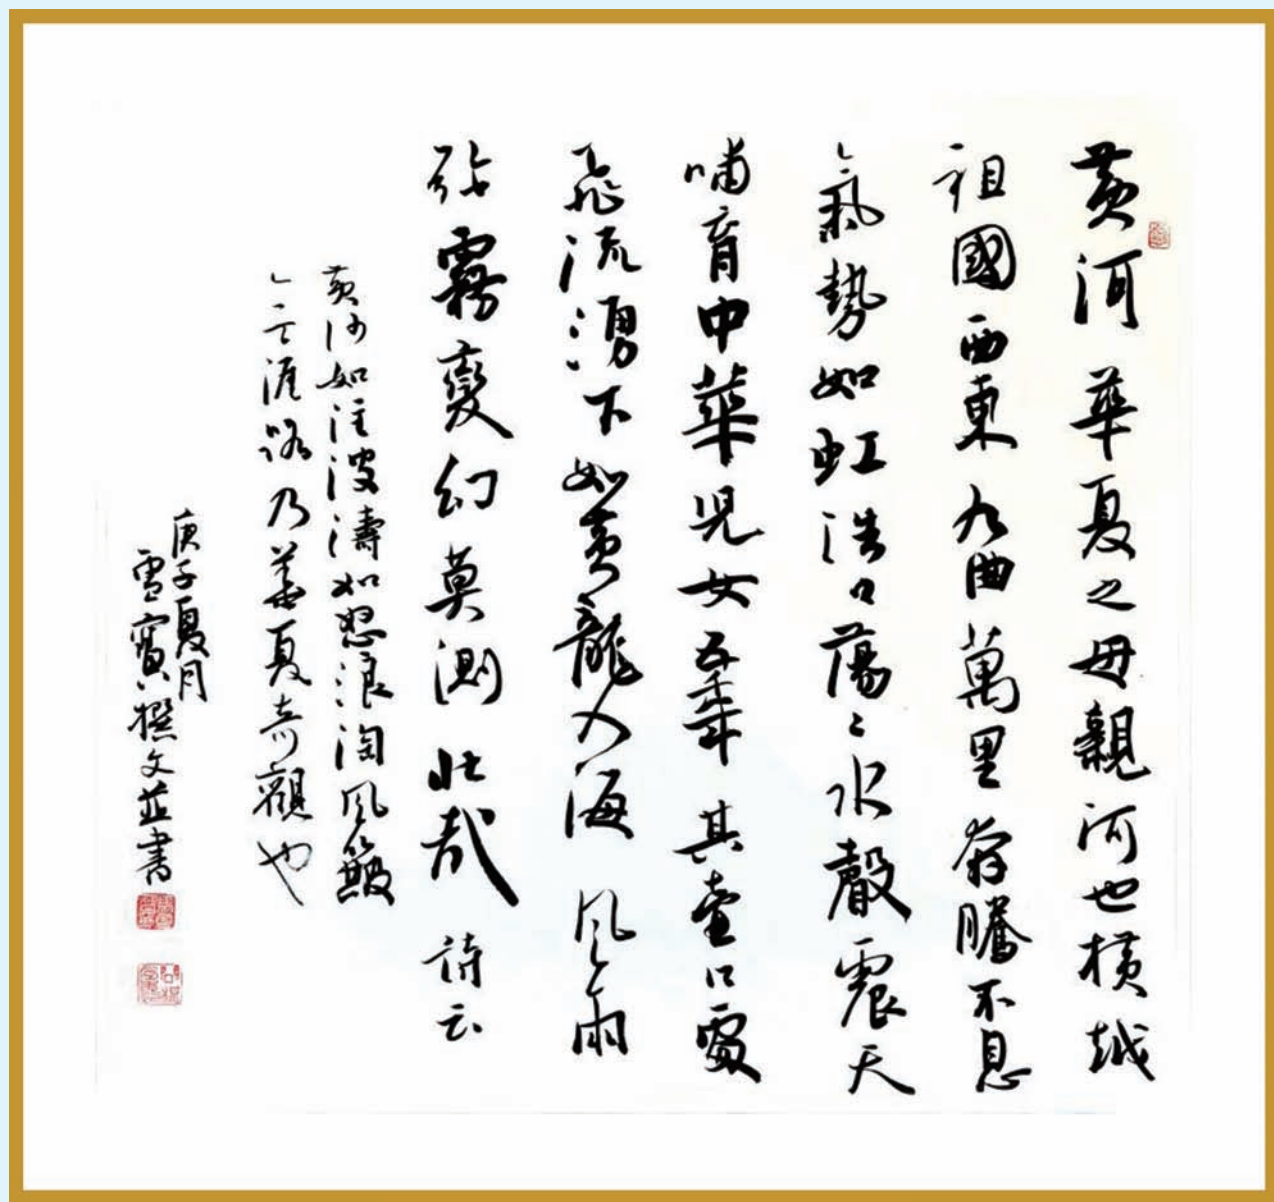 黄河華夏之母親河也橫越
祖國西東九曲萬里奔騰不息
氣勢如虹浩〻蕩〻水聲震天
哺育中華兒女五千年其壺口處
飛流湧下如黄龍入海風雨
霧變幻莫測壯哉詩云
黄沙如注波濤如怒浪淘風簸
涯路乃華夏奇觀也
庚子夏月
雪寳撰文並書